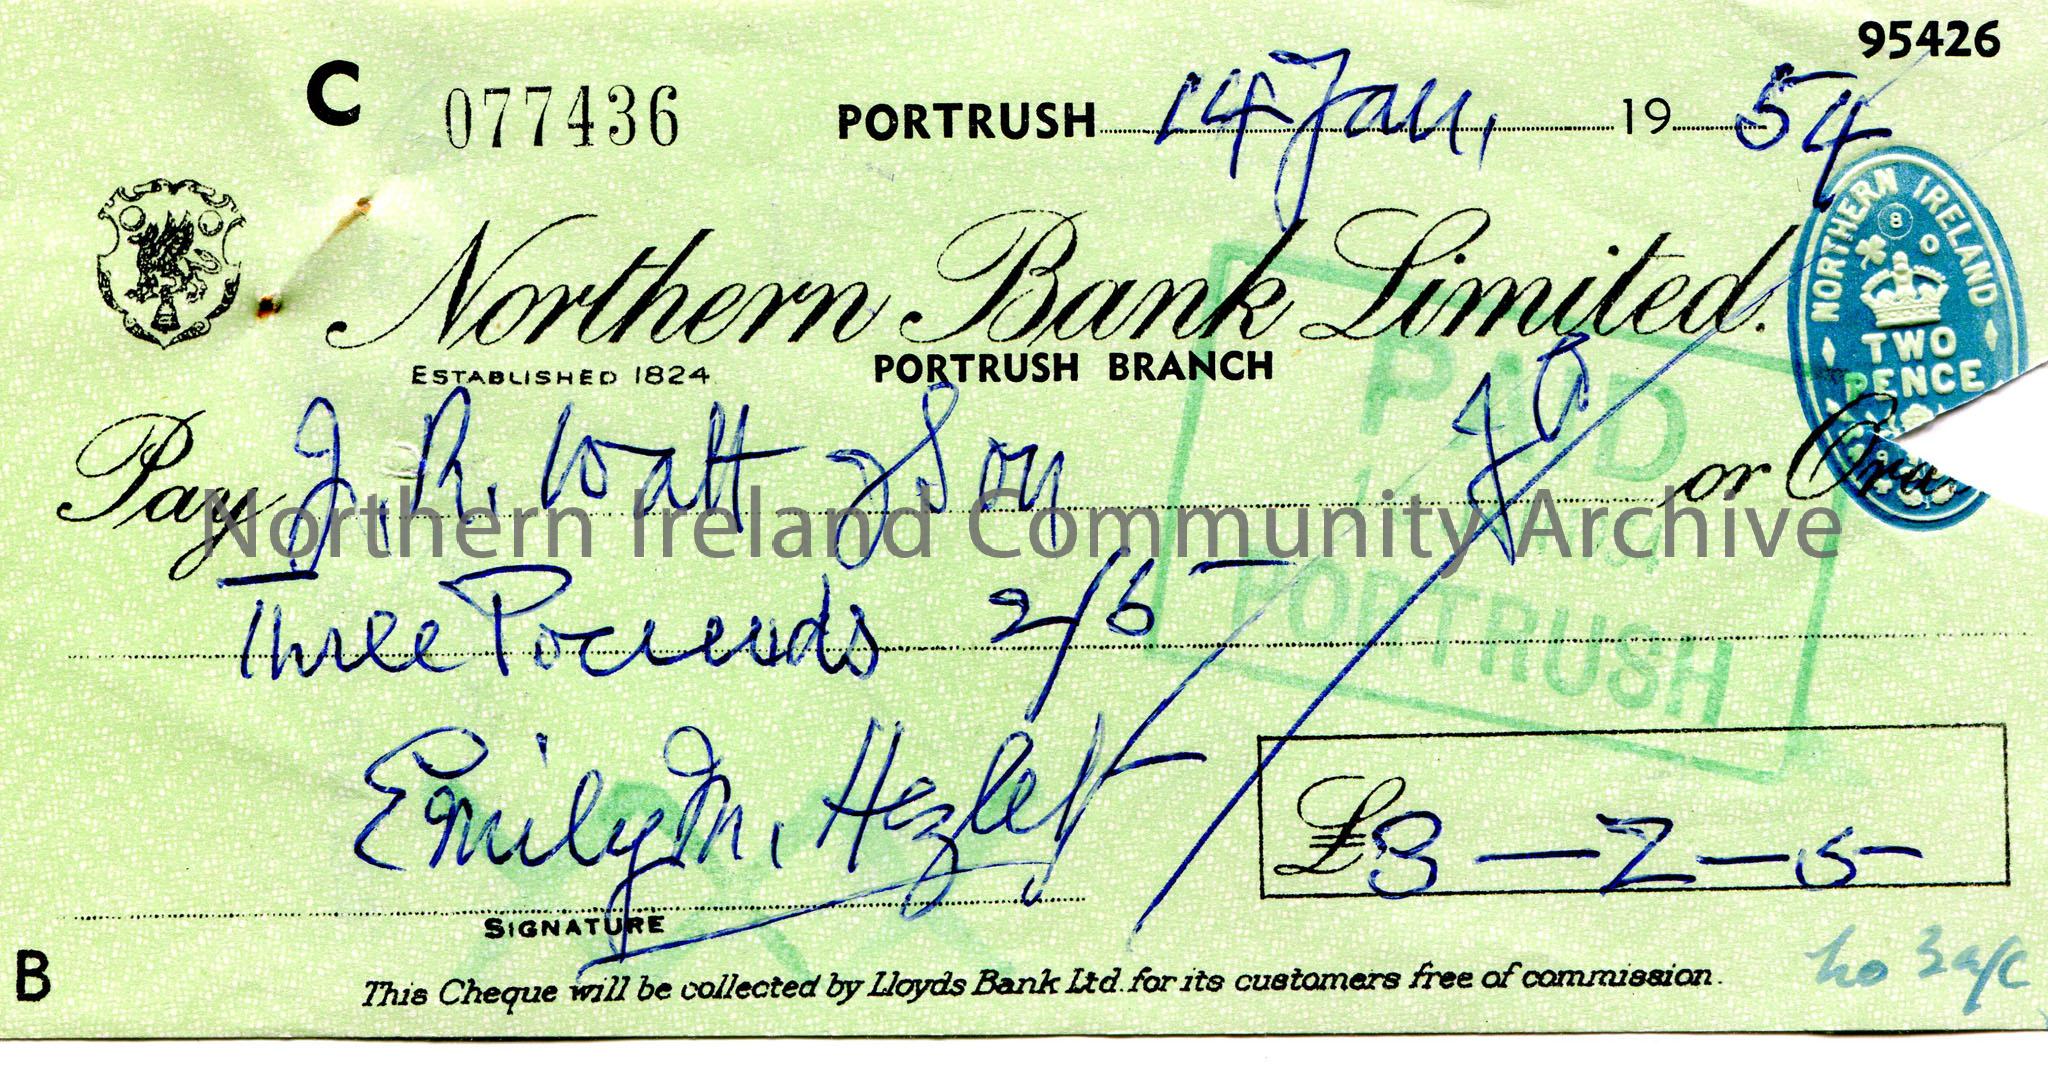 95426
C 077436 PORTRUSH 14 Jan, 19 54
NORTHERN IRELAND
8 0
TWO
PENCE
Northern Bank Limited.
ESTABLISHED 1824 PORTRUSH BRANCH
PAID
PORTRUSH
Pay J. R. Watt & Son or
Northern Ireland Community Archive
Three Pounds 2/5
Emily M. Hezlet
£3-2-5-
SIGNATURE
B
This Cheque will be collected by Lloyds Bank Ltd. for its customers free of commission.
No 3 a/c